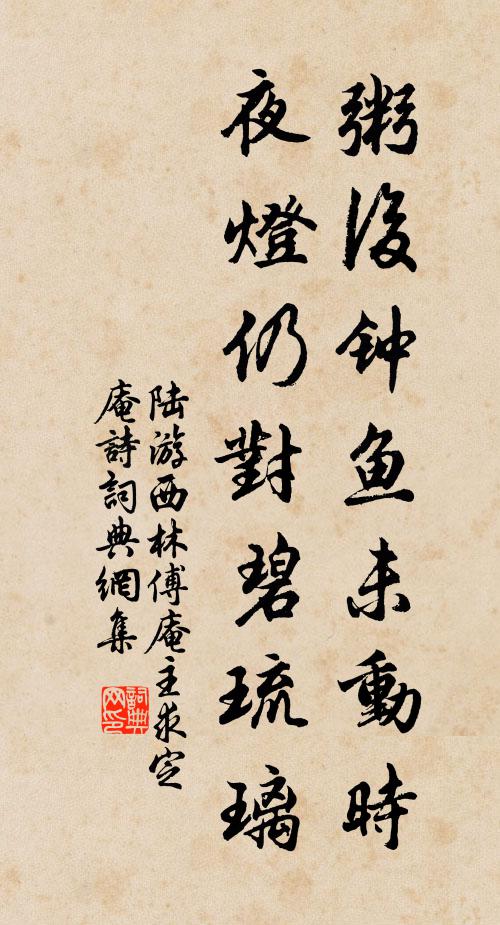 粥後钟鱼未動時
夜燈仍對碧琉璃
陆游西林傅庵主求定
庵詩詞典網集
詞典網印